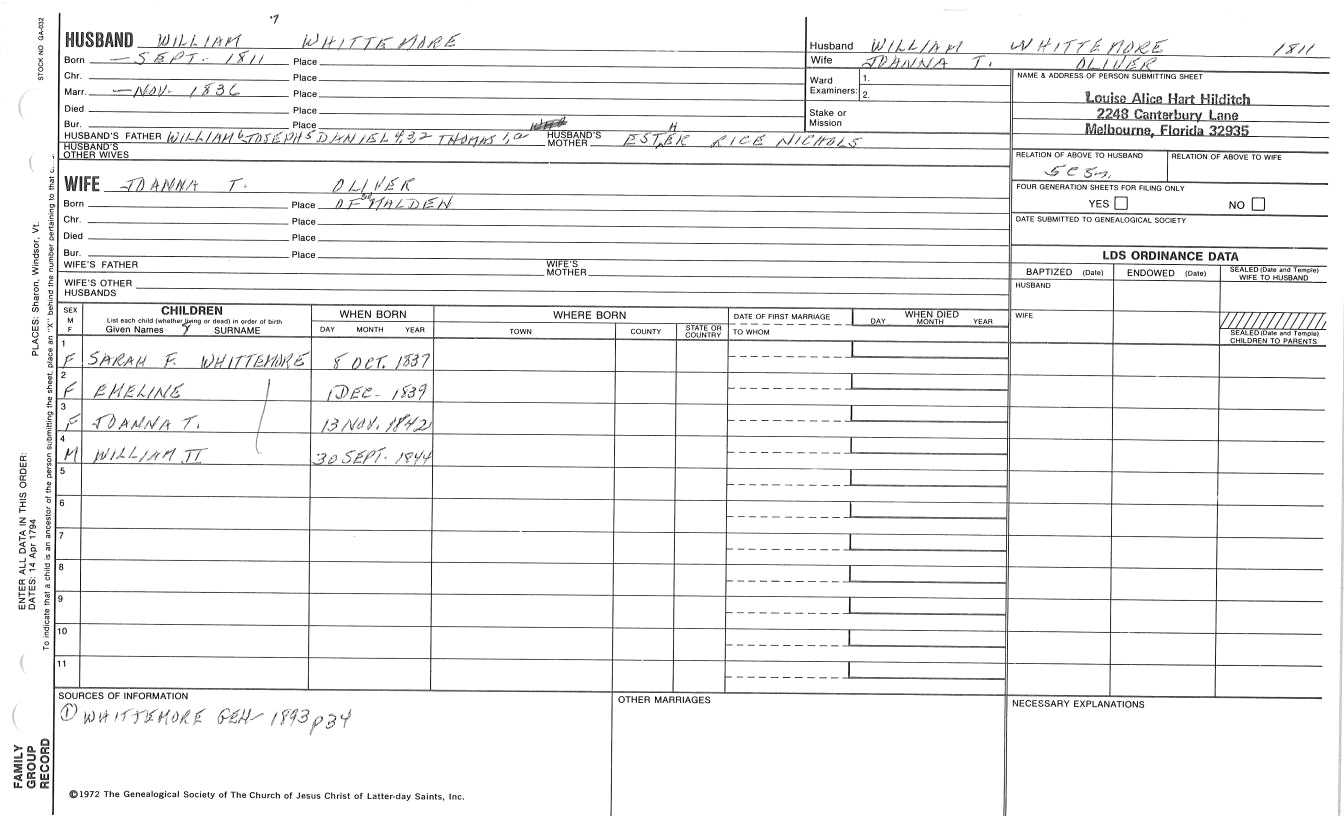 7
HUSBAND WILLIAM WHITTEMORE
Born — SEPT. 1811 Place
Chr. Place
Marr. — NOV. 1836 Place
Died Place
Bur. Place
HUSBAND'S FATHER WILLIAM 6 JOSEPH 5 DANIEL 4,3,2 THOMAS 1,a HUSBAND'S MOTHER ESTHER RICE NICHOLS
HUSBAND'S OTHER WIVES
WIFE JOANNA T. OLIVER
Born Place OF MALDEN
Chr. Place
Died Place
Bur. Place
WIFE'S FATHER WIFE'S MOTHER
WIFE'S OTHER HUSBANDS
Husband WILLIAM WHITTEMORE 1811
Wife JOANNA T. OLIVER
Ward Examiners: 1.
2.
Stake or Mission
NAME & ADDRESS OF PERSON SUBMITTING SHEET
Louise Alice Hart Hilditch
2248 Canterbury Lane
Melbourne, Florida 32935
RELATION OF ABOVE TO HUSBAND RELATION OF ABOVE TO WIFE
5C5R
FOUR GENERATION SHEETS FOR FILING ONLY
YES NO
DATE SUBMITTED TO GENEALOGICAL SOCIETY
LDS ORDINANCE DATA
BAPTIZED (Date) ENDOWED (Date) SEALED (Date and Temple) WIFE TO HUSBAND
HUSBAND
WIFE
SEALED (Date and Temple) CHILDREN TO PARENTS
SEX M F
CHILDREN
List each child (whether living or dead) in order of birth
Given Names SURNAME
WHEN BORN
DAY MONTH YEAR
WHERE BORN
TOWN COUNTY STATE OR COUNTRY
DATE OF FIRST MARRIAGE
TO WHOM
WHEN DIED
DAY MONTH YEAR
1 F SARAH F. WHITTEMORE 8 OCT. 1837
2 F EMELINE 1 DEC - 1839
3 F JOANNA T. 13 NOV. 1842
4 M WILLIAM II 30 SEPT. 1844
5
6
7
8
9
10
11
SOURCES OF INFORMATION
① WHITTEMORE GEN 1893 p34
OTHER MARRIAGES
NECESSARY EXPLANATIONS
©1972 The Genealogical Society of The Church of Jesus Christ of Latter-day Saints, Inc.
STOCK NO. GA-032
PLACES: Sharon, Windsor, Vt.
To indicate that a child is an ancestor of the person submitting the sheet, place an "X" behind the number pertaining to that c
ENTER ALL DATA IN THIS ORDER:
DATES: 14 Apr 1794
FAMILY GROUP RECORD